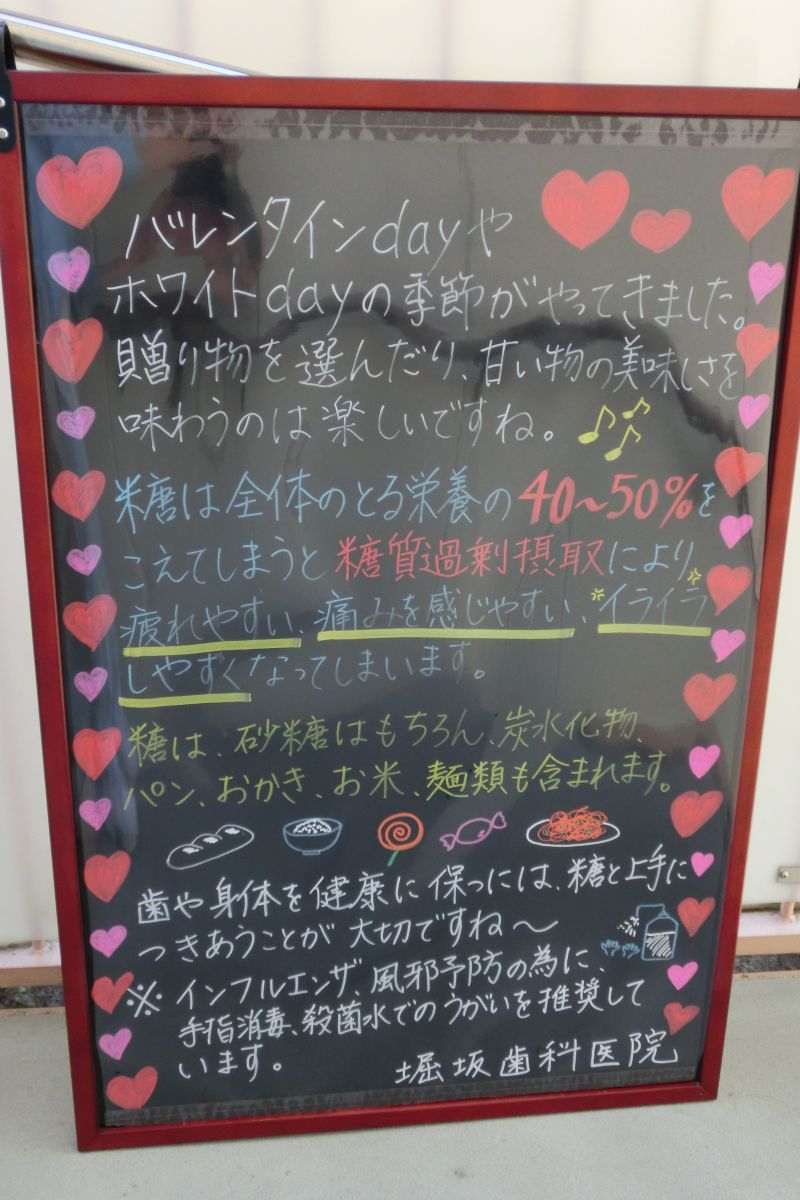 バレンタインdayや
ホワイトdayの季節がやってきました。
贈り物を選んだり、甘い物の美味しさを
味わうのは楽しいですね。
糖は全体のとる栄養の40~50%を
こえてしまうと糖質過剰摂取により
疲れやすい、痛みを感じやすい、イライラ
しやすくなってしまいます。
糖は、砂糖はもちろん、炭水化物、
パン、おかき、お米、麺類も含まれます。
歯や身体を健康に保つには、糖と上手に
つきあうことが大切ですね〜
※インフルエンザ、風邪予防の為に、
手指消毒、殺菌水でのうがいを推奨して
います。
堀坂歯科医院